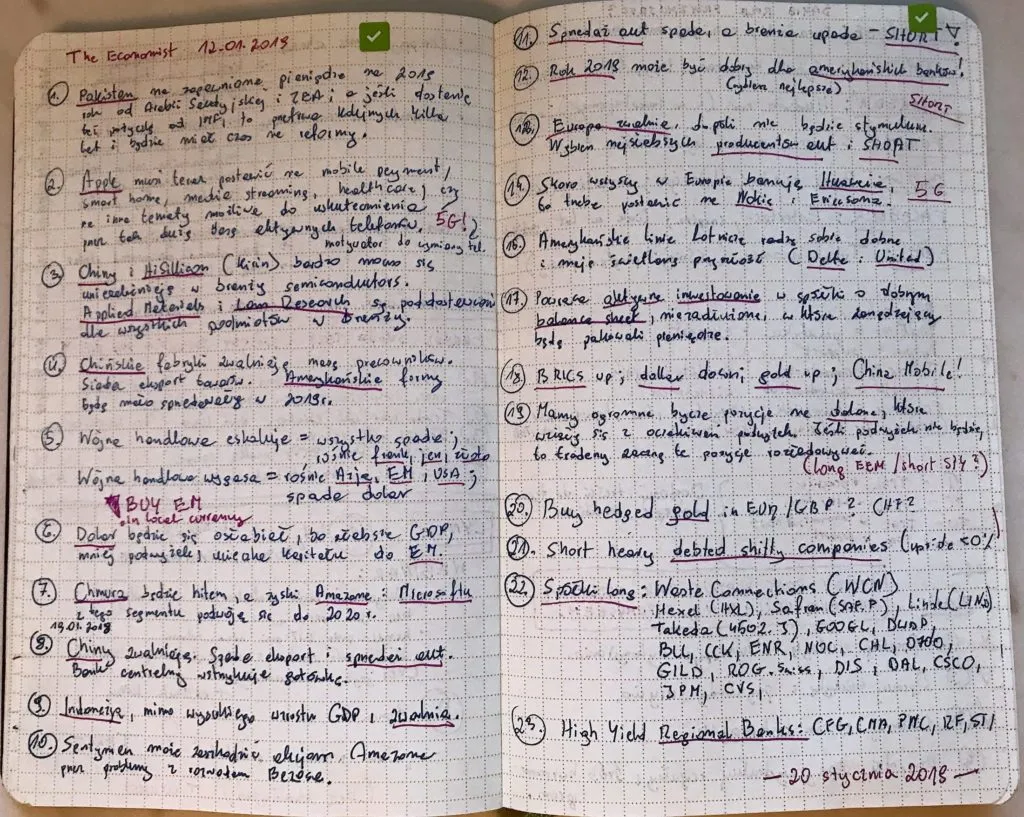 The Economist 12.01.2019
1. Pakistan ma zapewnione pieniądze na 2019
rok od Arabii Saudyjskiej i ZEA; a jeśli dostanie
też pożyczkę od IMF, to przetrwa kolejnych kilka
lat i będzie miał czas na reformy.
2. Apple musi teraz postawić na mobile payment,
smart home, media streaming, healthcare, czy
na inne tematy możliwe do uskutecznienia
przez tak dużą bazę aktywnych telefonów. 5G!
motywator do wymiany tel.
3. Chiny i HiSillicon (Kirin) bardzo mocno się
uniezależniają w branży semiconductors.
Applied Materials i Lam Research są poddostawcami
dla wszystkich podmiotów w branży.
4. Chińskie fabryki zwalniają masę pracowników.
Siada eksport towarów. Amerykańskie firmy
będą mało sprzedawały w 2019r.
5. Wojna handlowa eskaluje = wszystko spada;
rośnie frank, jen, złoto
Wojna handlowa wygasa = rośnie Azja, EM, USA;
spada dolar
BUY EM
in local currency
6. Dolar będzie się osłabiał, bo słabsze GDP,
mniej podwyżek, ucieczka kapitału do EM.
7. Chmura będzie hitem, a zyski Amazona i Microsoftu
z tego segmentu podwoją się do 2020r.
19.01.2019
8. Chiny zwalniają. Spada eksport i sprzedaż aut.
Bank centralny wstrzykuje gotówkę.
9. Indonezja, mimo wysokiego wzrostu GDP, zwalnia.
10. Sentyment może zaszkodzić akcjom Amazona
przez problemy z rozwodem Bezosa.
11. Sprzedaż aut spada, a branża upada - SHORT!
12. Rok 2019 może być dobry dla amerykańskich banków!
(wybieram najlepsze)
SHORT
13. Europa zwalnia, dopóki nie będzie stymulusu.
Wybieram najsłabszych producentów aut i SHORT
14. Skoro wszyscy w Europie banują Huaweia, 5G
to trzeba postawić na Nokię i Ericssona.
16. Amerykańskie linie lotnicze radzą sobie dobrze
i mają świetlaną przyszłość (Delta i United)
17. Powraca aktywne inwestowanie w spółki o dobrym
balance sheet, niezadłużone, w które zarządzający
będą pakowali pieniądze.
18. BRICS up; dollar down; gold up; China Mobile!
19. Mamy ogromne bycze pozycje na dolarze, które
wzięły się z oczekiwań podwyżek. Jeśli podwyżek nie będzie,
to traderzy zaczną te pozycje rozładowywać.
(long EEM / short SPY?)
20. Buy hedged gold in EUR/GBP? CHF?
21. Short heavy debted shitty companies (upside <0%
22. Spółki long: Waste Connections (WCN)
Hexcel (HXL), Safran (SAF.P), Linde (LIN)
Takeda (4502.J), GOOGL, DWDP,
BLL, CCK, ENR, NOC, CHL, 0700,
GILD, ROG.Swiss, DIS, DAL, CSCO,
JPM, CVS,
23. High Yield Regional Banks: CFG, CMA, PNC, RF, STI
- 20 stycznia 2019 -